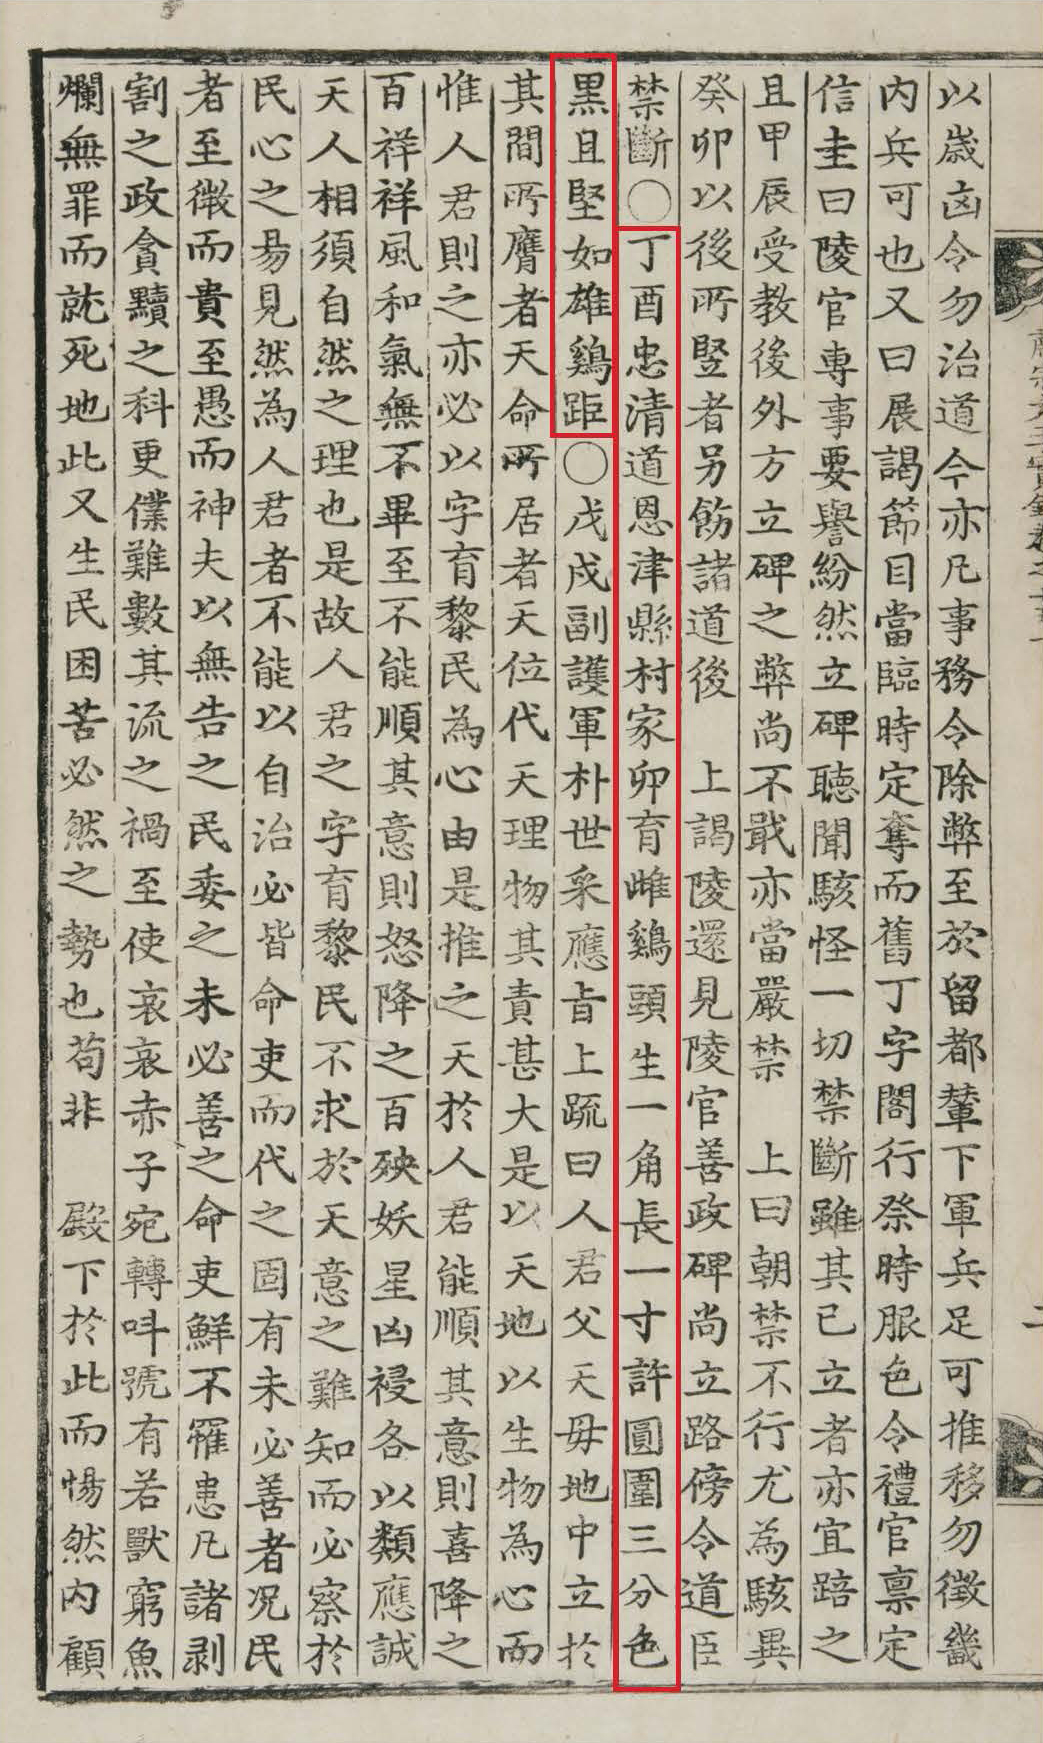 以歲凶令勿治道今亦凡事務令除弊至於留都輦下軍兵足可推移勿徵畿
內兵可也又曰展謁節目當臨時定奪而舊丁字閣行祭時服色令禮官禀定
信圭曰陵官專事要譽紛然立碑聽聞駭怪一切禁斷雖其已立者亦宜踣之
且甲辰受教後外方立碑之弊尚不戢亦當嚴禁　上曰朝禁不行尤為駭異
癸卯以後所竪者另飭諸道後　上謁陵還見陵官善政碑尚立路傍令道臣
禁斷○丁酉忠清道恩津縣村家卵育雌鷄頭生一角長一寸許圓圍三分色
黑且堅如雄鷄距○戊戌副護軍朴世采應旨上疏曰人君父天母地中立於
其間所膺者天命所居者天位代天理物其責甚大是以天地以生物為心而
惟人君則之亦必以字育黎民為心由是推之天於人君能順其意則喜降之
百祥祥風和氣無不畢至不能順其意則怒降之百殃妖星凶祲各以類應誠
天人相須自然之理也是故人君之字育黎民不求於天意之難知而必察於
民心之易見然為人君者不能以自治必皆命吏而代之固有未必善者况民
者至微而貴至愚而神夫以無告之民委之未必善之命吏鮮不罹患凡諸剥
割之政貪黷之科更僕難數其流之禍至使哀哀赤子宛轉呌號有若獸窮魚
爛無罪而就死地此又生民困苦必然之勢也苟非　殿下於此而惕然內顧